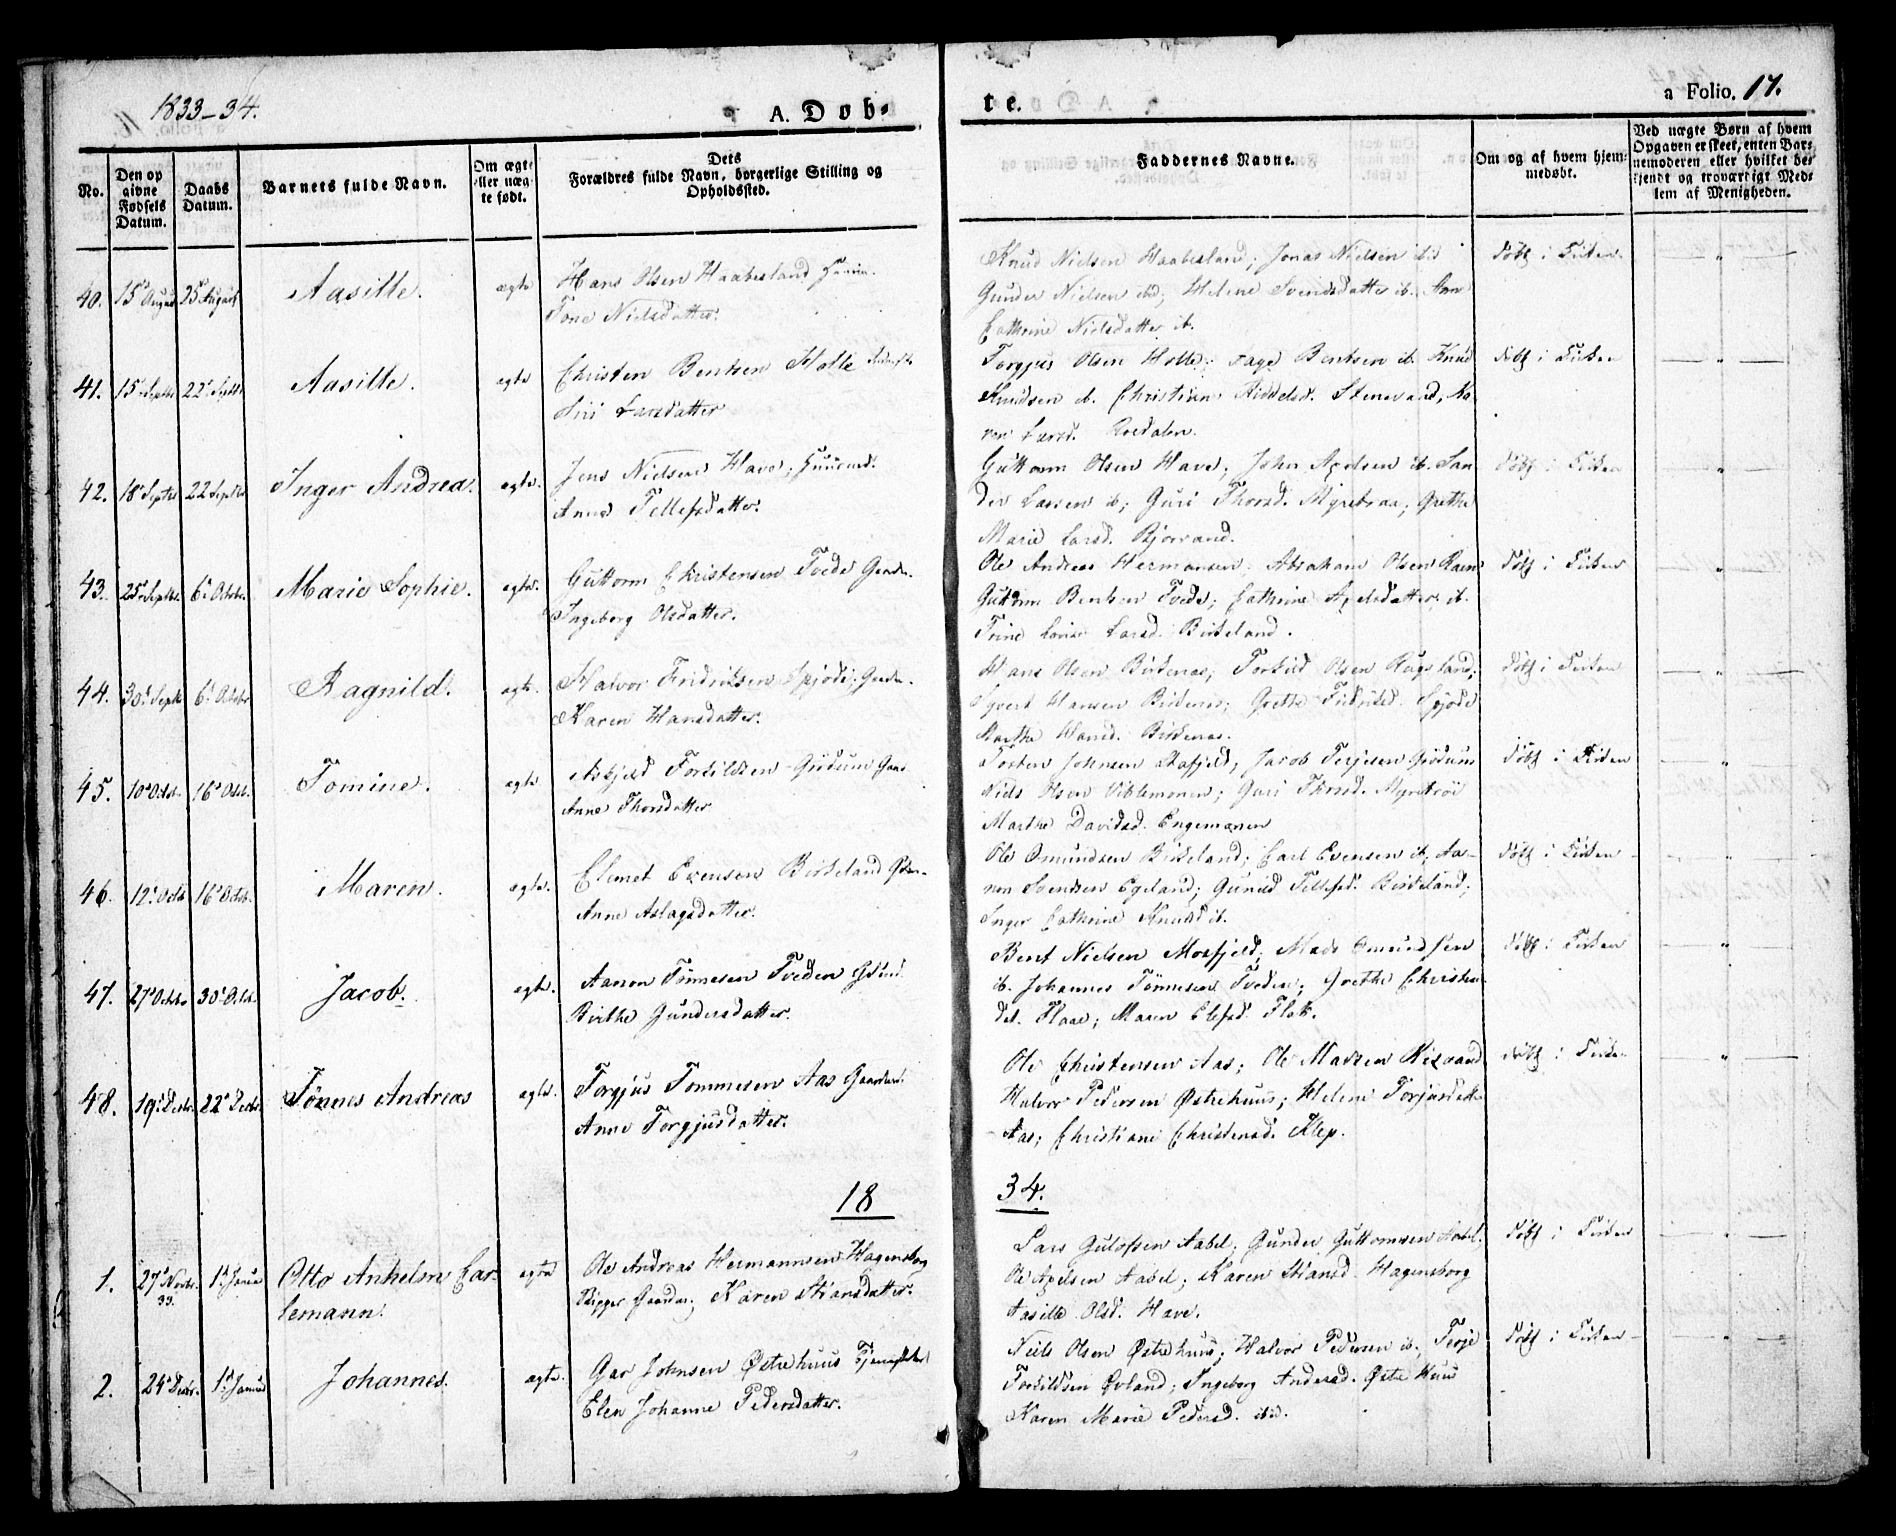 1833-34.
A. Døb-
te.
a Folio. 17.
No.
Den op
givne
Fødsels
Datum.
Daabs
Datum.
Barnets fulde Navn.
Om ægte
eller uæg
te født.
Dets
Forældres fulde Navn, borgerlige Stilling og
Opholdssted.
Faddernes Navne.
Om og af hvem hjem-
medøbt.
Ved uægte Børn af hvem
Opgaven er skeet, enten Bar-
nemoderen eller hvilket be-
kjendt og troværdigt Med-
lem af Menigheden.
40. 15de August 25de August Aasille. ægte Hans Olsen Haabesland
Tone Nielsdatter.
Knud Nielsen Haabesland; Jonas Nielsen ibid
Gunder Nielsen ibd; Helene Svendsdatter ib. Ane
Cathrine Nielsdatter ib.
døbt i Kirken
41. 15de Septbr 22de Septbr Aasille. ægte Christen Bentsen Holte
Siri Larsdatter
Torgjus Olsen Holte; Aage Bentsen ib. Knud
Knudsen ib. Christiane Stenevand, Ka-
ren Larsd. Rosdalen.
døbt i Kirken
42. 18de Septbr 22 Septbr Inger Andrea. ægte. Jens Nielsen Have; Huusmd.
Anne Tellefsdatter.
Guttorm Olsen Have; John Axelsen ib. San-
der Larsen ib; Guri Thorsd. Myrebraa; Grethe
Marie Larsd. Bjorvand.
døbt i Kirken
43. 25de Septbr. 6te Octobr. Marie Sophie. ægte. Guttorm Christensen Tvede Gaardm.
Ingeborg Olsdatter.
Ole Andreas Hermansen; Abraham Olsen
Guttorm Bentsen Tvede; Cathrine Axelsdatter ib.
Trine Lovise Larsd. Birkeland.
døbt i Kirken
44. 30de Septb 6te Octobr Ragnild. ægte. Halvor Fridriksen Gaardm.
Karen Hansdatter.
Hans Olsen Birkenes; Torkild Olsen Rugsland;
Syvert Hansen Birkenes; Grethe Fridriksd.
Marthe Hansd. Birkenes.
døbt i Kirken
45. 10de Octob. 16de Octob. Tomine. ægte Askjeld Torkildsen
Anne Thorsdatter
Torsten Johnsen; Jacob Terjesen
Niels Olsen; Guri Thorsd.
Marthe Davidsd. Engemoenen
døbt i Kirken
46. 12te Octb 16de Octob. Maren. ægte. Clemet Evensen Birkeland
Anne Aslagsdatter.
Ole Omundsen Birkeland; Carl Evensen ib; Aa-
nen Svendsen Egeland; Gunild Tellefsd. Birkeland;
Inger Cathrine Knudsd ib.
døbt i Kirken
47. 27de Octobr 30te Octb. Jacob. ægte. Aanon Tønnesen Tveden
Birthe Gundersdatter.
Bent Nielsen Mosfjeld; Mads Omundsen
ib. Johannes Tönnesen Tveden; Grethe Christen-
dat. Flaae; Maren Elefsd. Flak.
døbt i Kirken
48. 19de Decbr. 22de Decbr. Tönnes Andreas ægte. Torgjus Tommesen Aas Gaardm.
Anne Torgjusdatter.
Ole Christensen Aas; Ole Madsen
Halvor Pedersen Østrehuus; Helene Torjusdatt.
Aas; Christiane Christensd. Klep.
døbt i Kirken
18
34.
1. 27de Novbr. 33. 1ste Januar Otto Anhelm Car-
lemann. ægte Ole Andreas Hermannsen Hagensborg
Skipper; Karen Stiansdatter.
Lars Gulofsen Aabel; Gunder Guttormsen Aabel.
Ole Axelsen Aabel; Karen Stiansd. Hagensborg
Aasille Olsd. Have.
døbt i Kirken
2. 24de Decbr. 1ste Januar Johannes. ægte. Gar Johnsen Østrehuus
Elen Johanne Pedersdatter.
Niels Olsen Østrehuus; Halvor Pedersen ib. Terje
Torkildsen; Ingeborg Andersd. Østrehuus
Karen Marie Pedersd. ibid.
døbt i Kirken